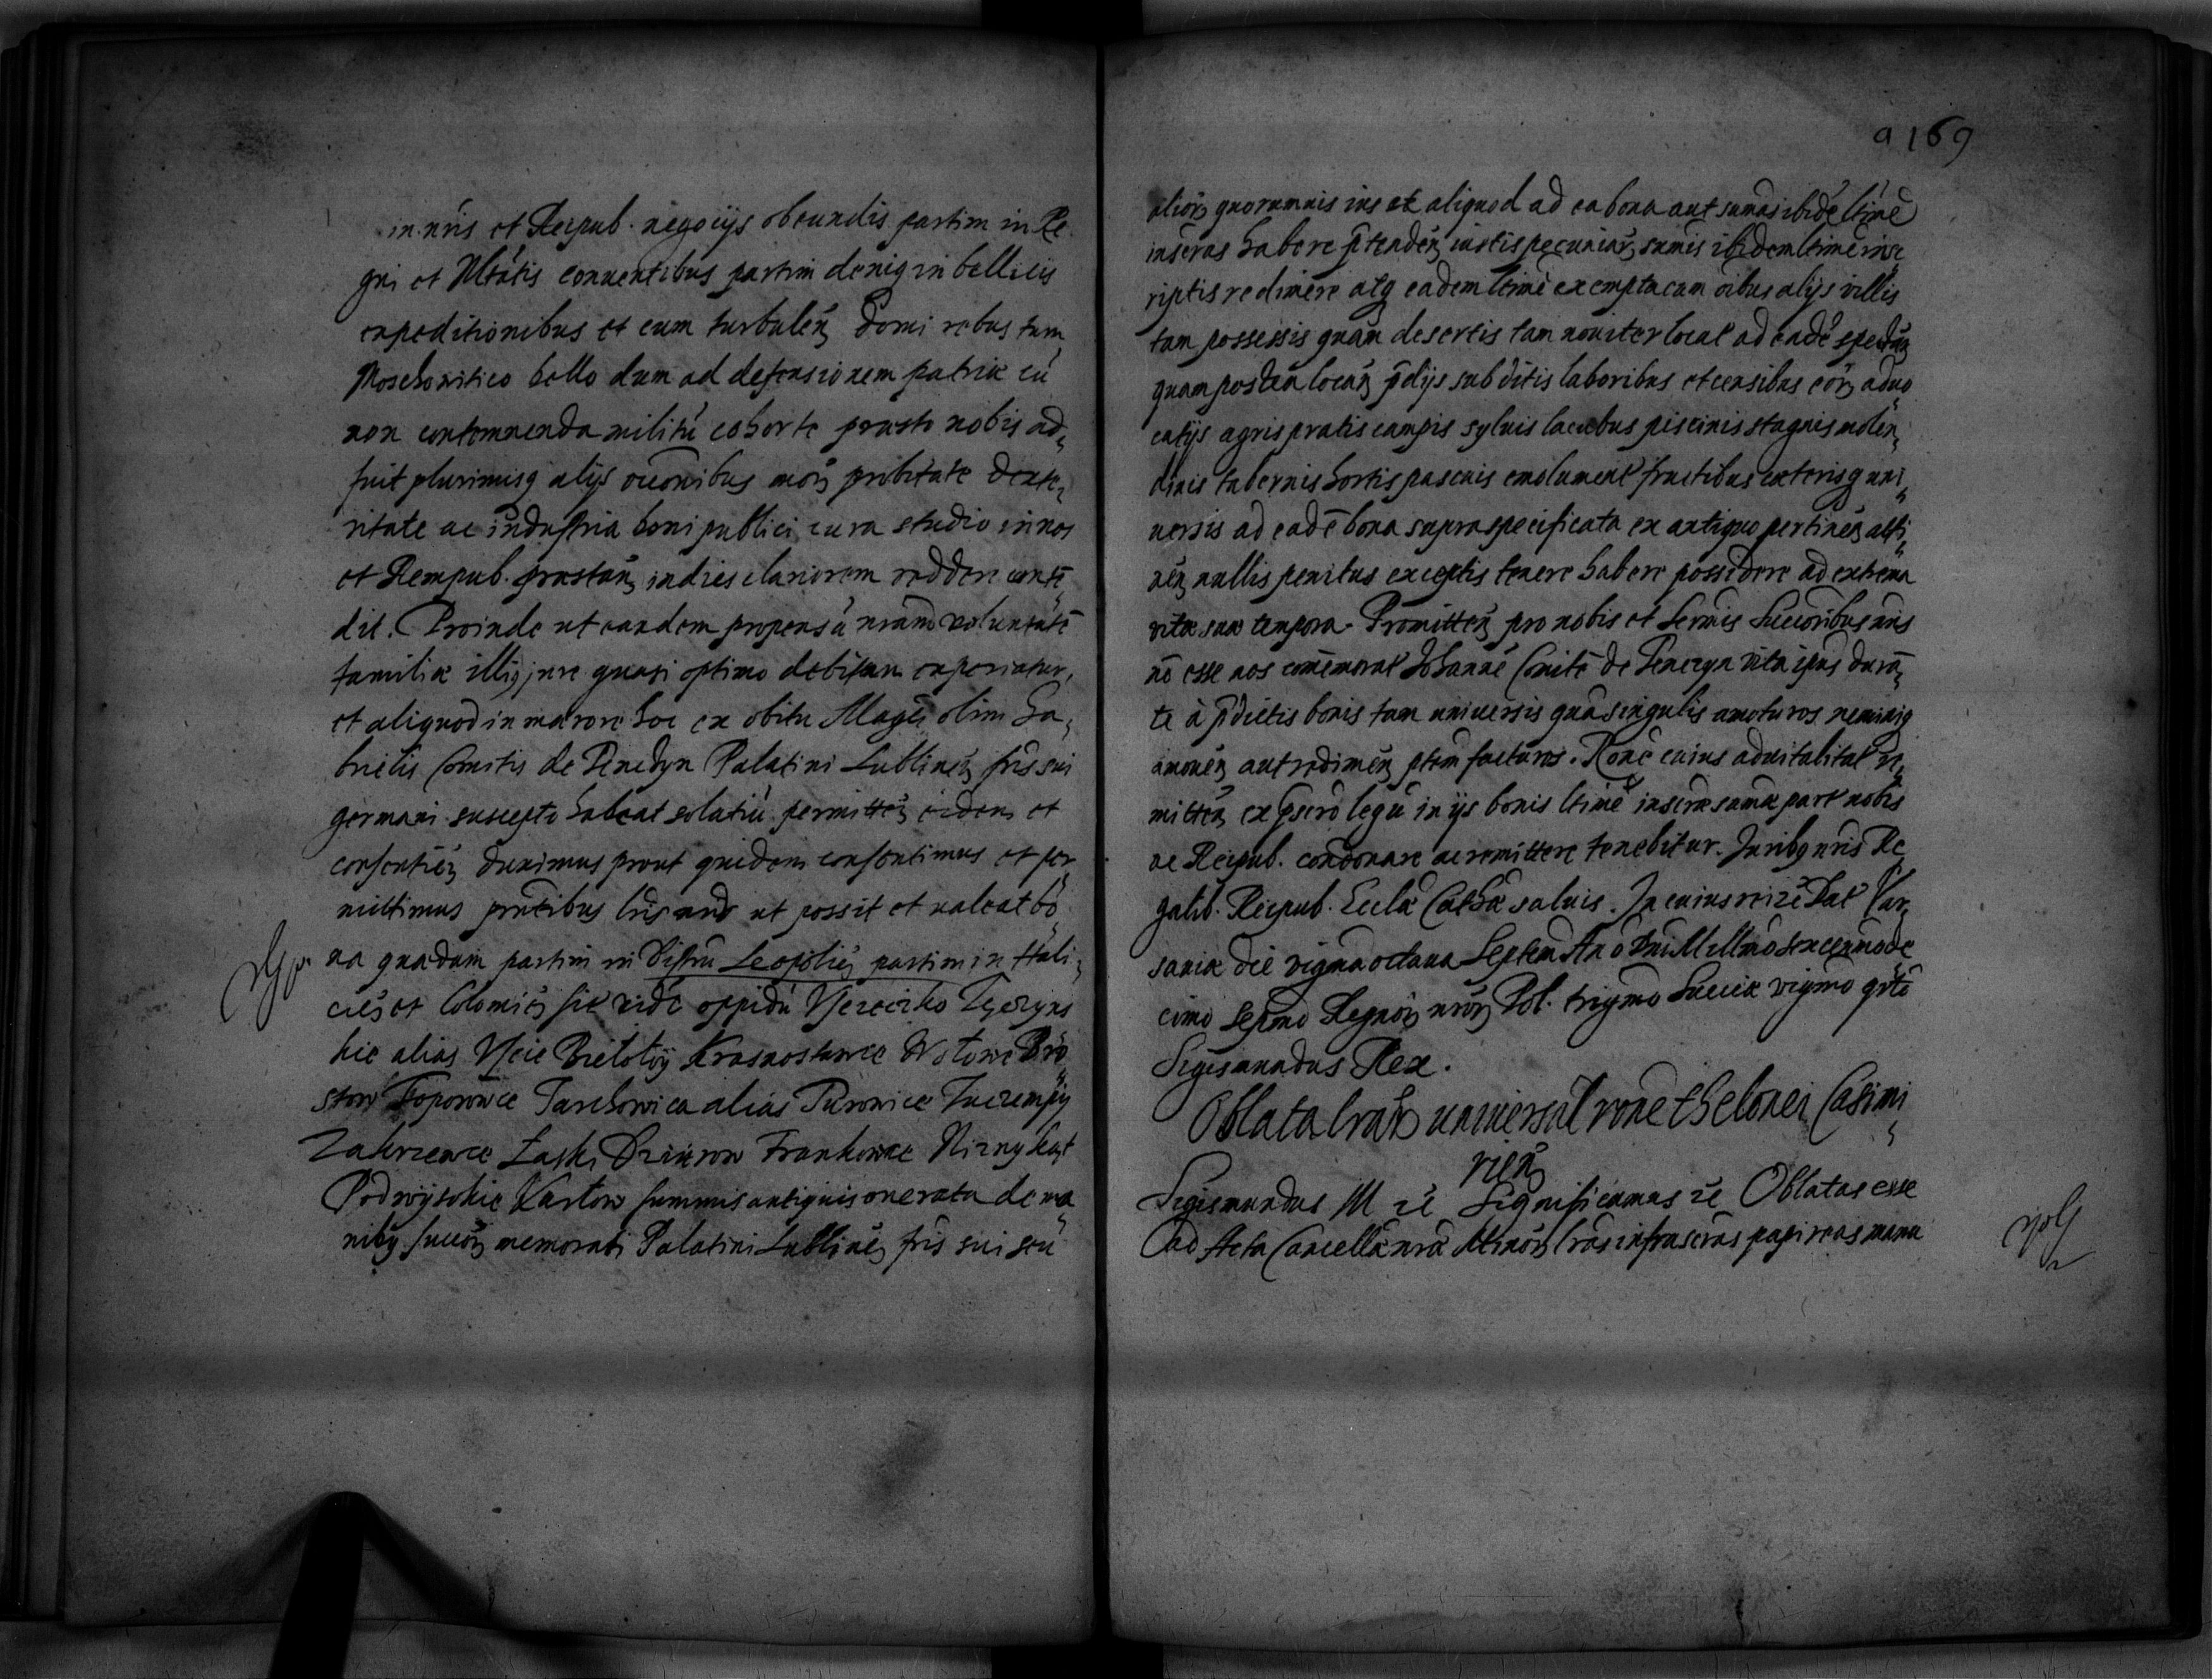 in nris et Reipub. negocijs obeundis partim in Re
gni et Mltatis conuentibus partim deniq in bellicis
expeditionibus et cum turbulen domi rebus tum
Moschouitico bello dum ad defensionem patriæ cu
non contemnenda militu cohorte præsto nobis ad
fuit plurimisq alijs occonibus mor probitate dexte
ritate ac industria boni publici cura studio in nos
et Rempub. præstan indies clariorem reddere conte
dit. Proinde ut eandem propensa nram voluntate
familiæ illiq jure quasi optimo debitam experiatur,
et aliquod in mærore hoc ex obitu Magci olim Ga
brielis Comitis de Tenczyn Palatini Lublinen fris sui
germani suscepto habeat solatiu permitten eidem et
consentien duximus prout quidem consentimus et per
mittimus pntibus lris nris ut possit et valeat bo
na quædam partim in Distru Leopolien partim in Hali
cien et Colomien sit vide oppidu Vscieczko Tęczyns
kie alias Vscie Bieloboy Krasnostawce Wołowe Bro
stow Toporowce Tarchowica alias Turowice Zuczempy
Zakrzewce Laski Dzurow Frankowce Nizny kąt
Podwysokie Karlow summis antiquis onerata de ma
nibq succor memorati Palatini Lublinen fris sui seu
a 169
alior quorumuis ius et aliquod ad ea bona aut sumas ibide ltime
inscras habere ptenden iustis pecuniar sumis ibidem ltime insc
riptis redimere atq eadem ltime exempta cum oibus alijs villis
tam possessis quam desertis tam nouiter locat ad eade spectan
quam postea locan pdijs subditis laboribus et censibus eor aduo
catijs agris pratis campis syluis lacubus piscinis stagnis molen
dinis tabernis hortis pascuis emolument fructibus cæterisq uni
uersis ad eade bona supra specificata ex antiquo pertinen atti
nen nullis penitus exceptis tenere habere possidere ad extrema
vitæ suæ tempora. Promitten pro nobis et Sermis Succoribus nris
no esse nos comemorat Johanne Comite de Tenczyn vita ipius duran
te à pdictis bonis tam universis qua singulis amoturos neminiq
amouen aut redimen ptem facturos. Rone cuius aduitalitat re
mitten ex pscro legu in ijs bonis ltime inscræ sumæ part nobis
ac Reipub. condonare ac remittere tenebitur. Juribq nris Re
galib. Reipub. Ecclæ Cathcæ saluis. In cuius rei zc Dat Var
sauiæ die vigma octaua Septem Ano Dni Millmo sexcenmo de
cimo Septmo Regnor nror Pol. trigmo Sueciæ vigmo qrto
Sigismundus Rex.
Oblata lrar universal rone thelonei Casimi
rien
Sigismundus III zc Significamus zc Oblatas esse
ad Acta Cancellæ nræ Minor lras infrascras papireas manu